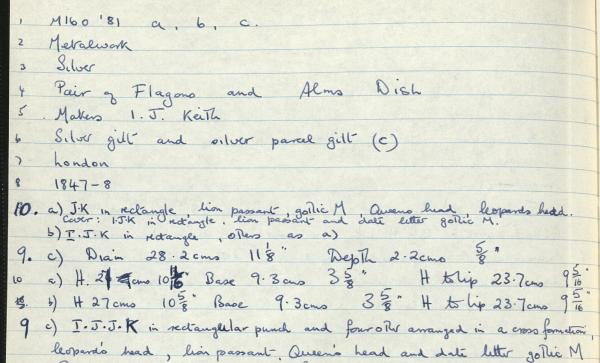 1 M160 '81 a, b, c.
2 Metalwork
3 Silver
4 Pair of Flagons and Alms Dish
5. Makers I.J. Keith
6 Silver gilt and silver parcel gilt (c)
7 London
8 1847-8
10. a) J.K in rectangle, lion passant, gothic M, Queens head, leopards head.
Cover: I.J.K in rectangle, lion passant and date letter gothic M.
b) I.J.K in rectangle, others as a)
9. c) Diam 28.2cms 11 1/8" Depth 2.2cms 5/8"
10 a) H. cms 10 Base 9.3cms 3 5/8" H to lip 23.7cms 9 5/16"
b) H 27cms 10 5/8" Base 9.3cms 3 5/8" H to lip 23.7cms 9 5/16"
9 c) I.J.J.K in rectanglular punch and four other arranged in a cross formation,
leopard's head, lion passant, Queen's head and date letter gothic M